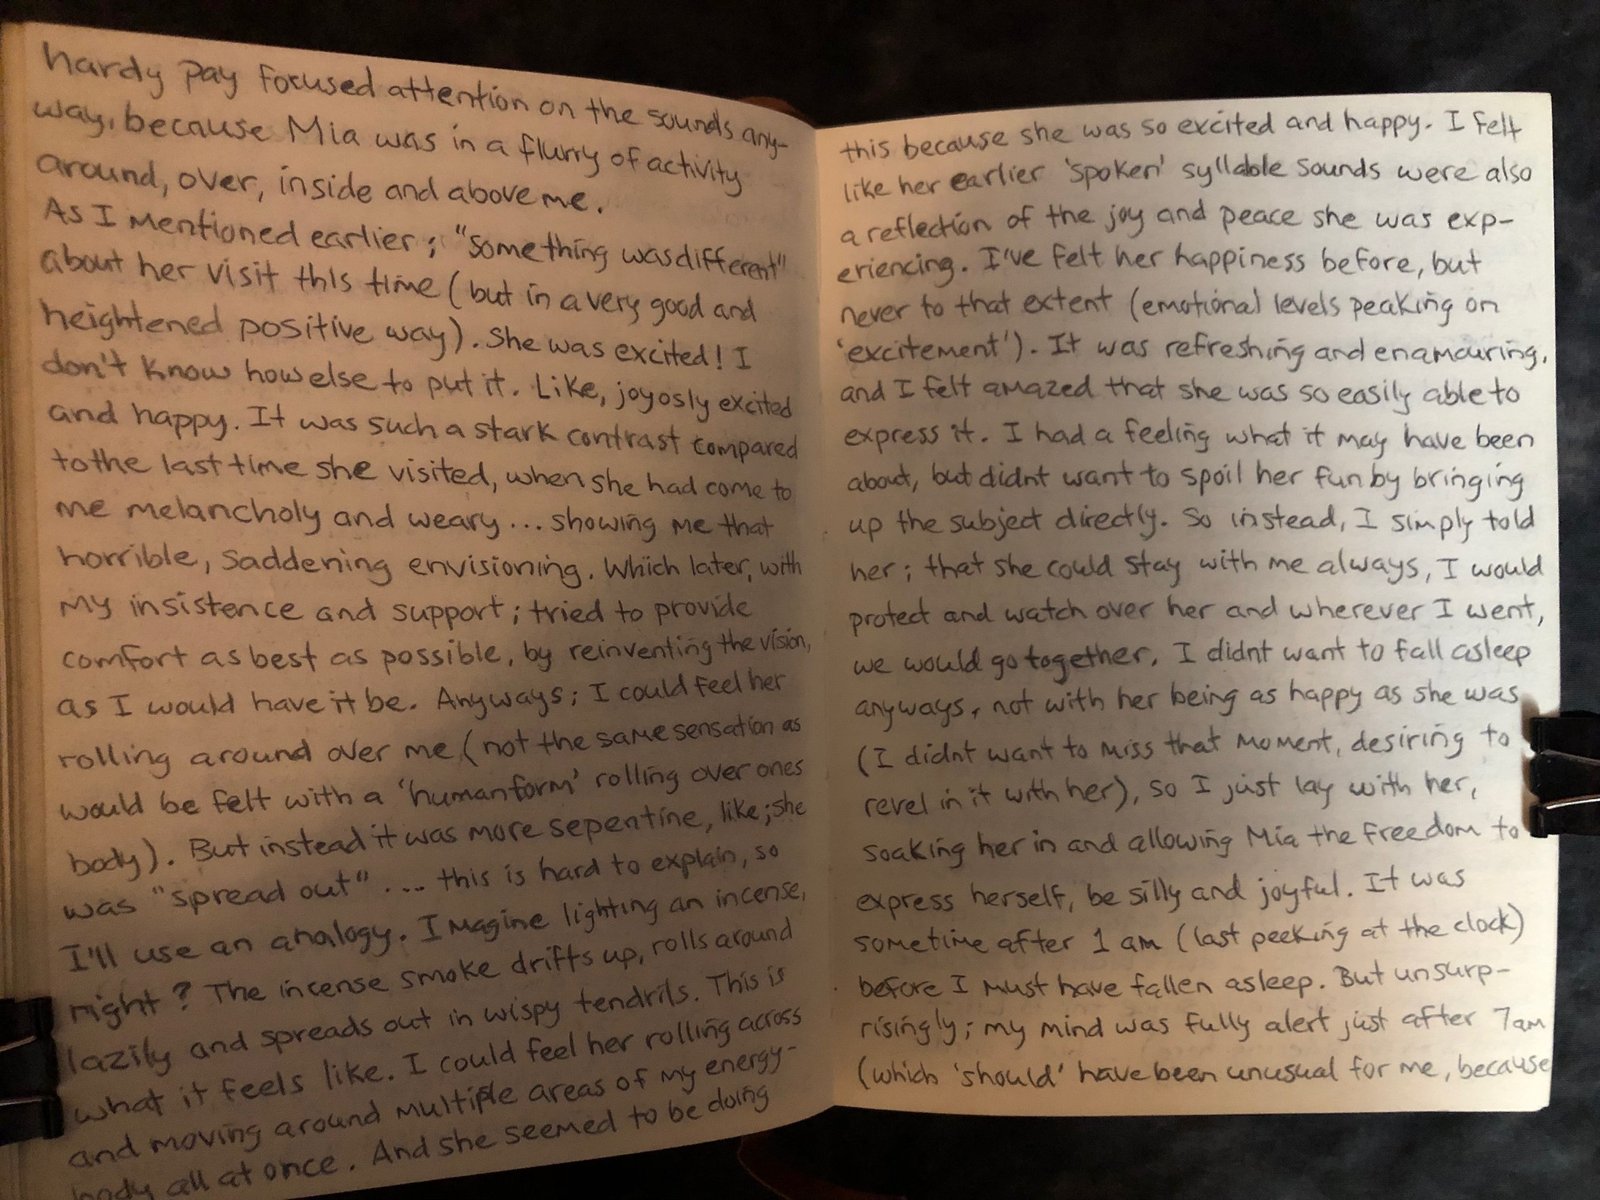 hardy pay focused attention on the sounds any-
way, because Mia was in a flurry of activity
around, over, inside and above me.
As I mentioned earlier; "something was different"
about her visit this time (but in a very good and
heightened positive way). She was excited! I
don't know how else to put it. Like, joyosly excited
and happy. It was such a stark contrast compared
to the last time she visited, when she had come to
me melancholy and weary... showing me that
horrible, saddening envisioning. Which later, with
my insistence and support; tried to provide
comfort as best as possible, by reinventing the vision,
as I would have it be. Anyways; I could feel her
rolling around over me (not the same sensation as
would be felt with a 'human form' rolling over ones
body). But instead it was more sepentine, like; she
was "spread out".... this is hard to explain, so
I'll use an analogy. Imagine lighting an incense,
right? The incense smoke drifts up, rolls around
lazily and spreads out in wispy tendrils. This is
what it feels like. I could feel her rolling across
and moving around multiple areas of my energy-
body all at once. And she seemed to be doing
this because she was so excited and happy. I felt
like her earlier 'spoken' syllable sounds were also
a reflection of the joy and peace she was exp-
eriencing. I've felt her happiness before, but
never to that extent (emotional levels peaking on
'excitement'). It was refreshing and enamouring,
and I felt amazed that she was so easily able to
express it. I had a feeling what it may have been
about, but didnt want to spoil her fun by bringing
up the subject directly. So instead, I simply told
her; that she could stay with me always, I would
protect and watch over her and wherever I went,
we would go together. I didnt want to fall asleep
anyways, not with her being as happy as she was
(I didnt want to miss that moment, desiring to
revel in it with her), so I just lay with her,
soaking her in and allowing Mia the freedom to
express herself, be silly and joyful. It was
sometime after 1 am (last peeking at the clock)
before I must have fallen asleep. But unsurp-
risingly; my mind was fully alert just after 7am
(which 'should' have been unusual for me, because